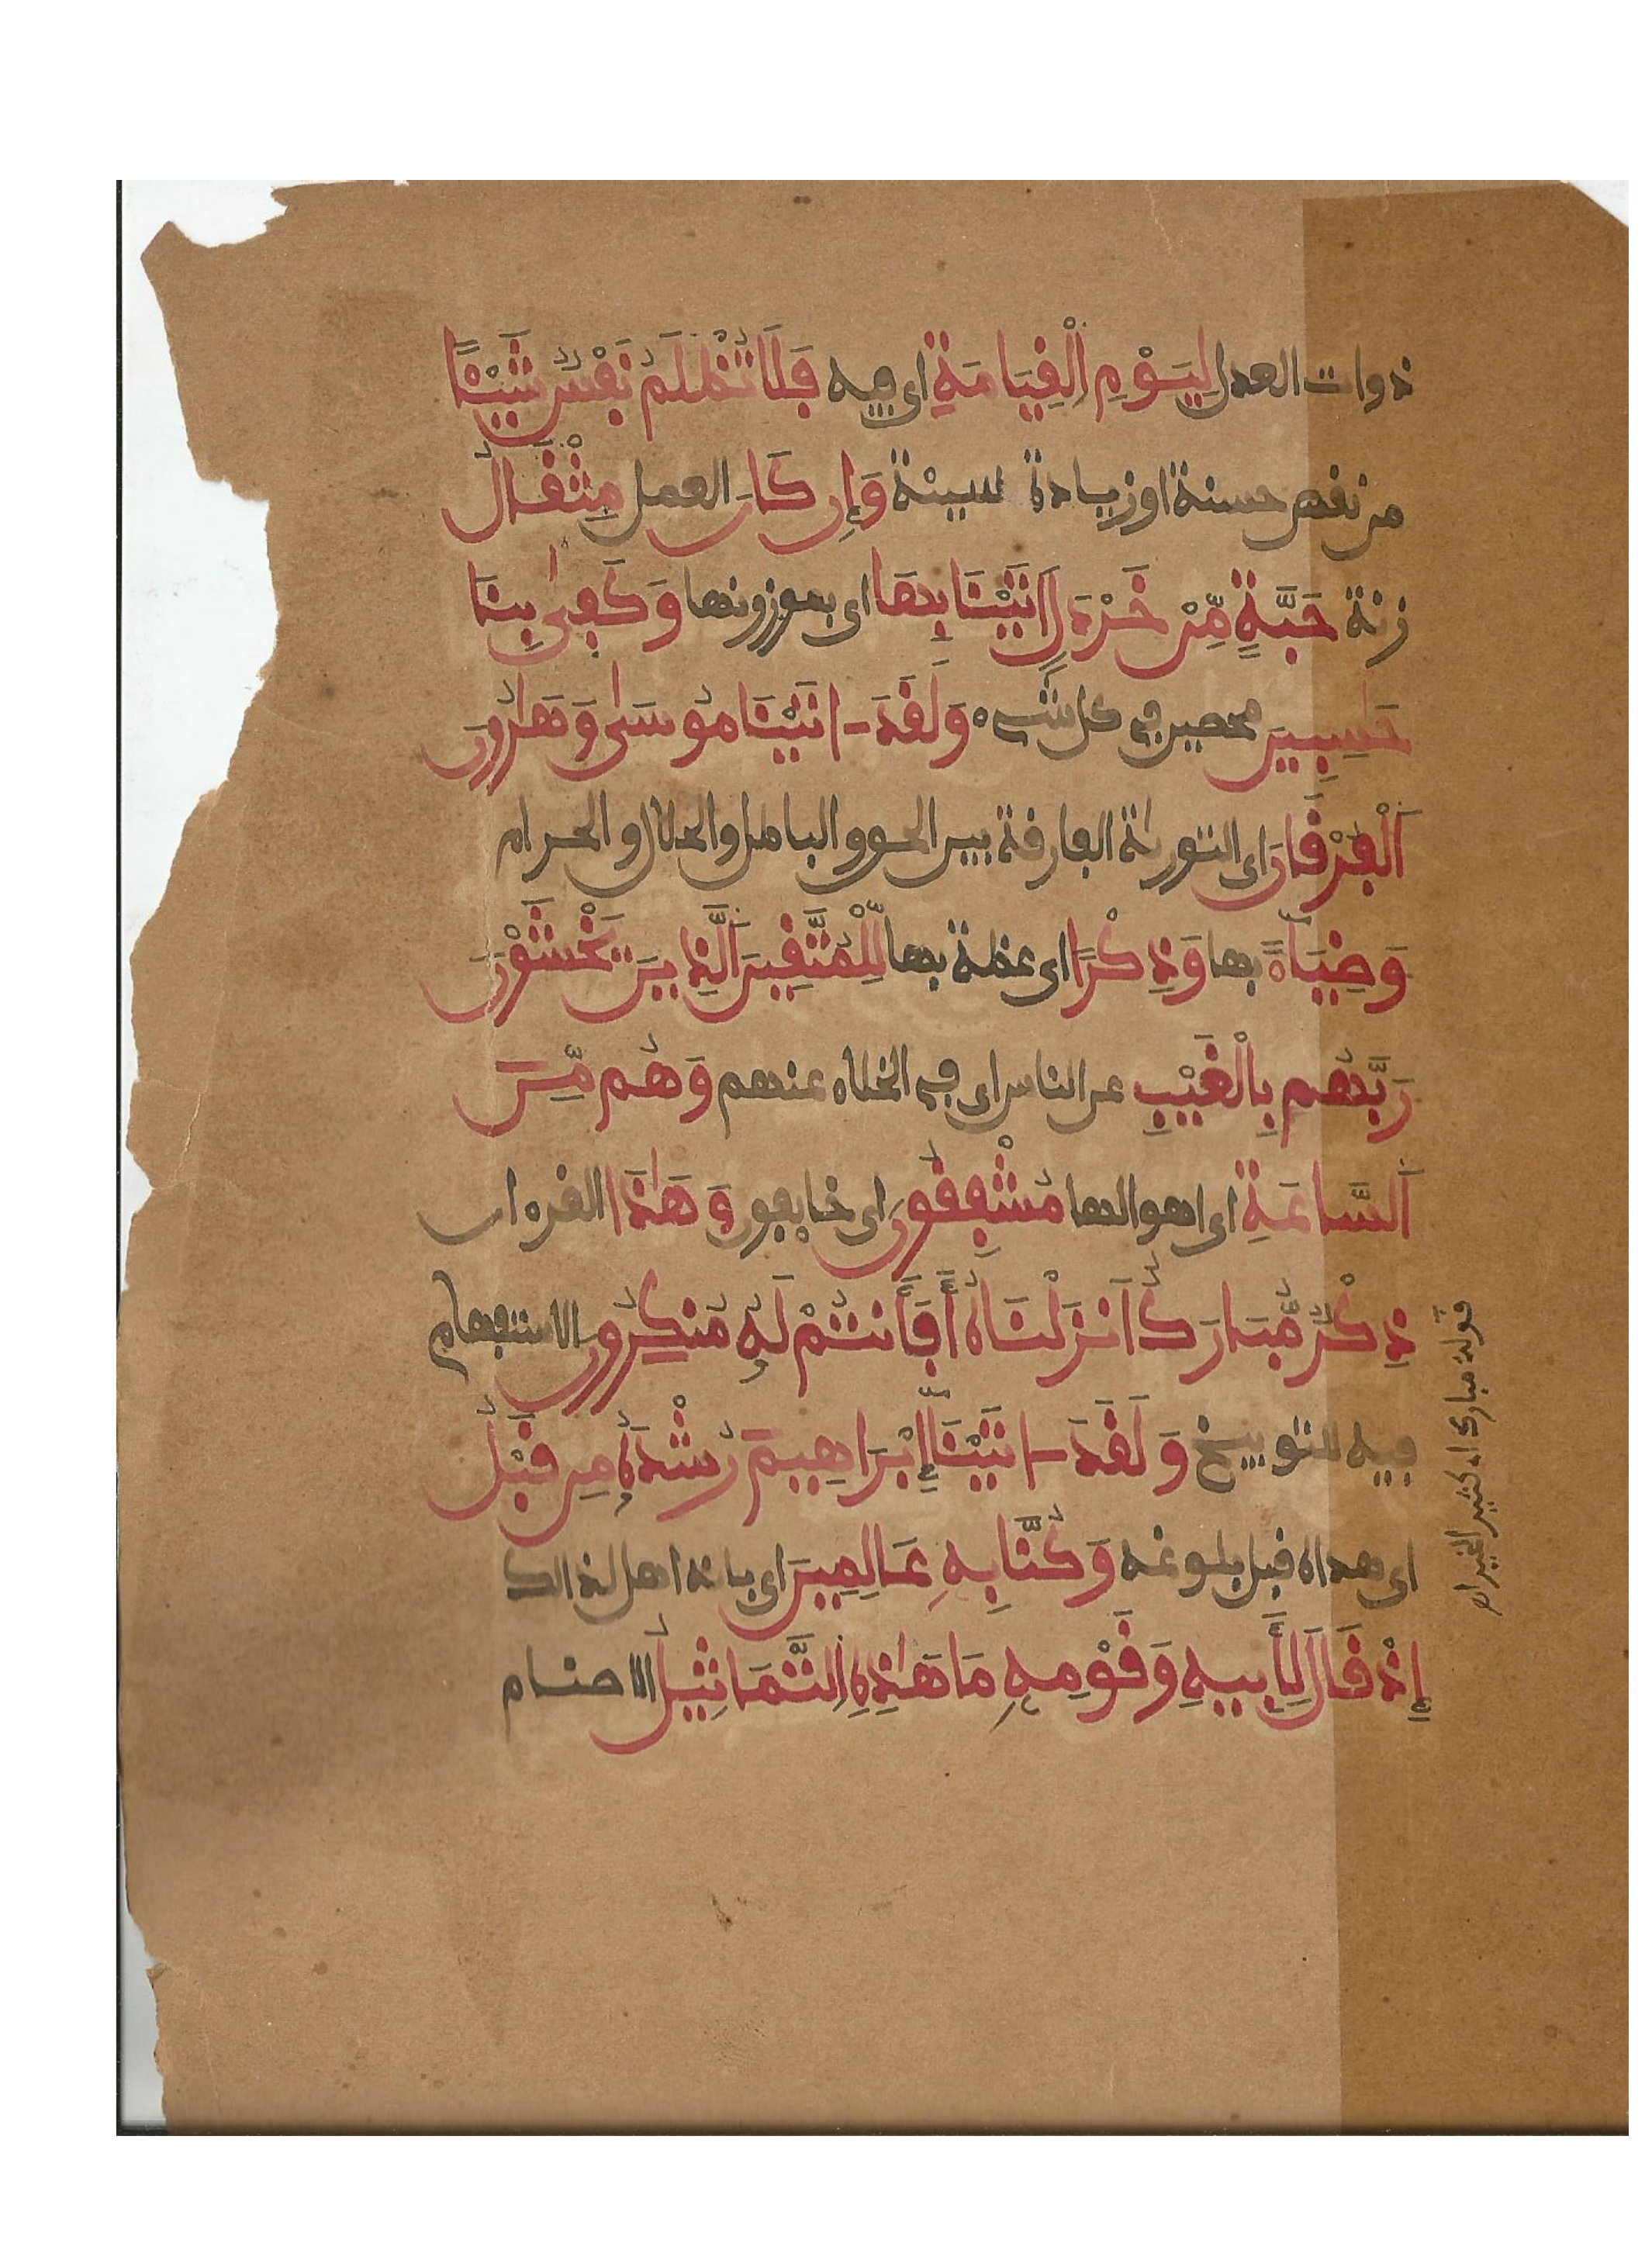 ذوات العدل لِيَوْمِ اِ۬لْقِيَامَةِ اى فيه فَلَا تُظْلَمُ نَفْسٌ شَيْـًٔا
من نقص حسنة او زيادة سيئة وَإِن كَانَ العمل مِثْقَالُ
زنة حَبَّةٍ مِّنْ خَرْدَلٍ اَتَيْنَا بِهَا اى بموزونها وَكَفىٰ بِنَا
حَٰسِبِينَ محصين في كل شىء وَلَقَدَ ـاتَيْنَا مُوسىٰ وَهَٰرُونَ
اَ۬لْفُرْقَانَ اى التورىٰة الفارقة بين الحق والباطل والحلال والحرام
وَضِيَآءً بها وَذِكْرًا اى عظة بها لِّلْمُتَّقِينَ اَ۬لَّذِينَ يَخْشَوْنَ
رَبَّهُم بِالْغَيْبِ عن الناس اى في الخلاء عنهم وَهُم مِّنَ
اَ۬لسَّاعَةِ اى اهوالها مُشْفِقُونَ اى خايفون وَهَٰذَا القرءان
ذِكْرٌ مُّبَارَكٌ اَنزَلْنَاهُ أَفَأَنتُمْ لَهُۥ مُنكِرُونَ الاستفهام
فيه للتوبيخ وَلَقَدَ ـاتَيْنَآ إِبْرَاهِيمَ رُشْدَهُۥ مِن قَبْلُ
اى هداه قبل بلوغه وَكُنَّا بِهِۦ عَالِمِينَ اى بانه اهل لذالك
إِذْ قَالَ لِأَبِيهِ وَقَوْمِهِۦ مَا هَٰذِهِ اِ۬لتَّمَاثِيلُ الاصنام
قوله مبارك اى كثير الخير اه